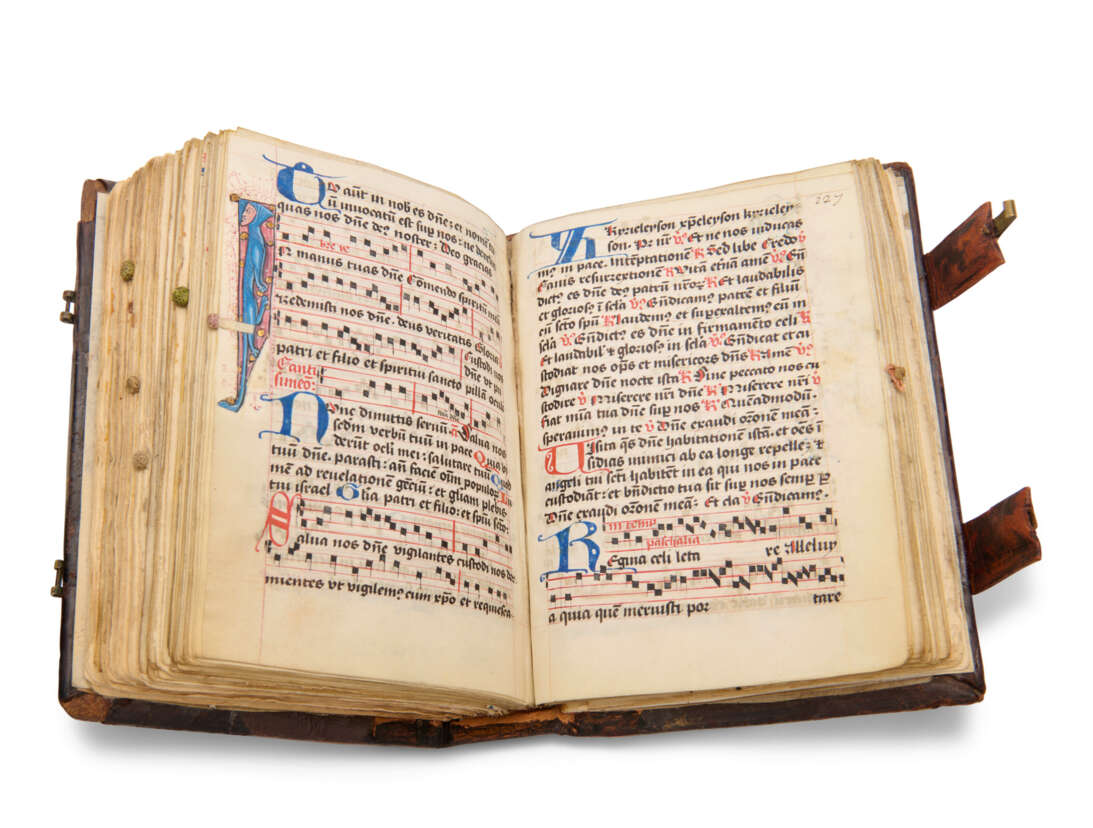 Tu aut̄ in nob es dn̄e: et nomen tuu
ū inuocatū est sup nos: ne derelin
quas nos dn̄e deꝰ noster: Deo gracias
br̄e ve
In manus tuas dn̄e Comendo spiritū meū
Redemisti nos dn̄e. deus veritatis Gloria
patri et filio et spiritui sancto Custodi nos
dn̄e vt pu
pillā oculi
Canti
simeo:
Nunc dimittis seruū Salua nos
scdm̄ verbū tuū in pace Quia vi
derūt oculi mei: salutare tuū Quod
parasti: an̄ faciem om̄ populoꝝ Lu
mē ad reuelationē gēciū: et gliam plebis
tui israel Glia patri et filio: et spiu scto:
Salua nos dn̄e vigilantes custodi nos dor
mientes vt vigilemꝰ cum xp̄o et requiesca
127
Kyrieleyson xp̄eleyson kyrieley
son. Pr nr̄ v̄ Et ne nos inducas
in temptationē R Sed libe Credo v̄
In pace. Carnis resurrextionē R Vitā etnā amē v̄ Bn̄
dictꝰ es dn̄e deꝰ patrū nr̄oꝝ R Et laudabilis
et gloriosꝰ i scla v̄ Bn̄dicamꝰ patrē et filiū
cū scto spū R Laudemꝰ et supexaltemꝰ eū in
scla v̄ Bn̄dictꝰ es dn̄e in firmamēto celi R
Et laudabil' & gloriosꝰ in scla v̄ Bn̄dicat et cu
stodiat nos op̄s et misericors dn̄s R Amē v̄
Dignare dn̄e nocte ista R Sine peccato nos cu
stodire v̄ Miserere nr̄i dn̄e R Miserere nr̄i v̄
Fiat mīa tua dn̄e sup nos R Quēadmodū
sperauimꝰ in te v̄ Dn̄e exaudi or̄onē meā:
Visita qs̄ dn̄e habitationē istā: et oēs i
sidias inimici ab ea longe repelle: &
angeli tui scti habitēt in ea qui nos in pace
custodiāt: et bn̄dictio tua sit sup nos semp p
Dn̄e exaudi or̄onē meā: Et cla v̄ Bn̄dicamꝰ
In temp
paschalia
Regina celi leta re Alleluy
a quia quē meruisti por tare